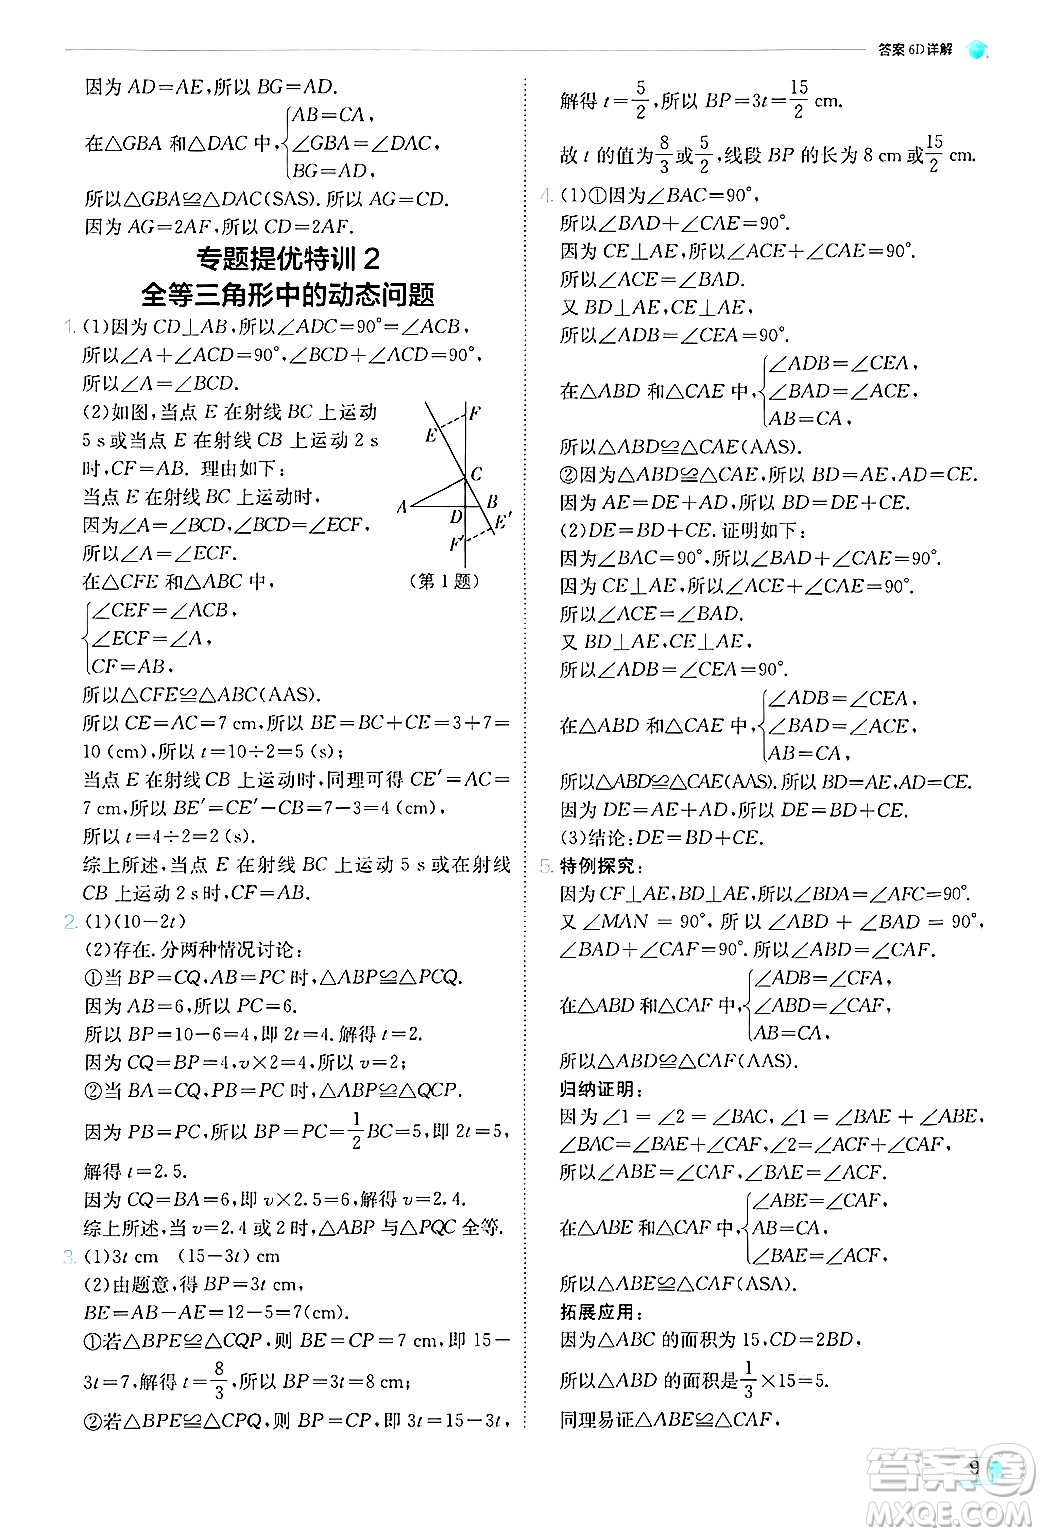 答案6D详解
因为 AD=AE,所以 BG=AD.
在△GBA 和△DAC 中,{AB=CA,
∠GBA=∠DAC,
BG=AD,
所以△GBA≌△DAC(SAS).所以 AG=CD.
因为 AG=2AF,所以 CD=2AF.
专题提优特训 2
全等三角形中的动态问题
1. (1)因为 CD⊥AB,所以∠ADC=90°=∠ACB,
所以∠A+∠ACD=90°,∠BCD+∠ACD=90°,
所以∠A=∠BCD.
(2)如图,当点 E 在射线 BC 上运动
5 s或当点 E 在射线 CB 上运动 2 s
时,CF=AB. 理由如下:
当点 E 在射线 BC 上运动时,
因为∠A=∠BCD,∠BCD=∠ECF,
所以∠A=∠ECF.
在△CFE 和△ABC 中,
{∠CEF=∠ACB,
∠ECF=∠A,
CF=AB,
F
E
C
A
D
B
E′
F′
(第 1 题)
所以△CFE≌△ABC(AAS).
所以 CE=AC=7 cm,所以 BE=BC+CE=3+7=
10(cm),所以 t=10÷2=5(s);
当点 E 在射线 CB 上运动时,同理可得 CE′=AC=
7 cm,所以 BE′=CE′-CB=7-3=4(cm),
所以 t=4÷2=2(s).
综上所述,当点 E 在射线 BC 上运动 5 s或在射线
CB 上运动 2 s时,CF=AB.
2. (1)(10-2t)
(2)存在.分两种情况讨论:
①当 BP=CQ,AB=PC 时,△ABP≌△PCQ.
因为 AB=6,所以 PC=6.
所以 BP=10-6=4,即 2t=4.解得 t=2.
因为 CQ=BP=4,v×2=4,所以 v=2;
②当 BA=CQ,PB=PC 时,△ABP≌△QCP.
因为 PB=PC,所以 BP=PC=1/2BC=5,即 2t=5,
解得 t=2.5.
因为 CQ=BA=6,即 v×2.5=6,解得 v=2.4.
综上所述,当 v=2.4 或 2 时,△ABP 与△PQC 全等.
3. (1)3t cm (15-3t) cm
(2)由题意,得 BP=3t cm,
BE=AB-AE=12-5=7(cm),
①若△BPE≌△CQP,则 BE=CP=7 cm,即 15-
3t=7,解得 t=8/3,所以 BP=3t=8 cm;
②若△BPE≌△CPQ,则 BP=CP,即 3t=15-3t,
解得 t=5/2,所以 BP=3t=15/2 cm.
故 t 的值为8/3或5/2,线段 BP 的长为 8 cm或15/2 cm.
4. (1)①因为∠BAC=90°,
所以∠BAD+∠CAE=90°.
因为 CE⊥AE,所以∠ACE+∠CAE=90°.
所以∠ACE=∠BAD.
又 BD⊥AE,CE⊥AE,
所以∠ADB=∠CEA=90°.
在△ABD 和△CAE 中,{∠ADB=∠CEA,
∠BAD=∠ACE,
AB=CA,
所以△ABD≌△CAE(AAS).
②因为△ABD≌△CAE,所以 BD=AE,AD=CE.
因为 AE=DE+AD,所以 BD=DE+CE.
(2)DE=BD+CE.证明如下:
因为∠BAC=90°,所以∠BAD+∠CAE=90°.
因为 CE⊥AE,所以∠ACE+∠CAE=90°.
所以∠ACE=∠BAD.
又 BD⊥AE,CE⊥AE,
所以∠ADB=∠CEA=90°.
在△ABD 和△CAE 中,{∠ADB=∠CEA,
∠BAD=∠ACE,
AB=CA,
所以△ABD≌△CAE(AAS).所以 BD=AE,AD=CE.
因为 DE=AE+AD,所以 DE=BD+CE.
(3)结论:DE=BD+CE.
5. 特例探究:
因为 CF⊥AE,BD⊥AE,所以∠BDA=∠AFC=90°.
又 ∠MAN = 90°, 所以 ∠ABD + ∠BAD = 90°,
∠BAD+∠CAF=90°.所以∠ABD=∠CAF.
在△ABD 和△CAF 中,{∠ADB=∠CFA,
∠ABD=∠CAF,
AB=CA,
所以△ABD≌△CAF(AAS).
归纳证明:
因为 ∠1 = ∠2 = ∠BAC, ∠1 = ∠BAE + ∠ABE,
∠BAC=∠BAE+∠CAF,∠2=∠ACF+∠CAF,
所以∠ABE=∠CAF,∠BAE=∠ACF.
在△ABE 和△CAF 中,{∠ABE=∠CAF,
AB=CA,
∠BAE=∠ACF,
所以△ABE≌△CAF(ASA).
拓展应用:
因为△ABC 的面积为 15,CD=2BD,
所以△ABD 的面积是1/3×15=5.
同理易证△ABE≌△CAF,
9
答案圈
MXQE.COM